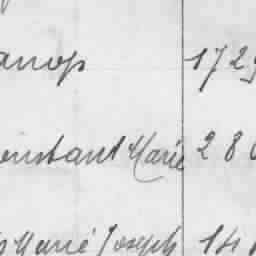 anop 1729
onstant Marie 280
Marie Joseph 141